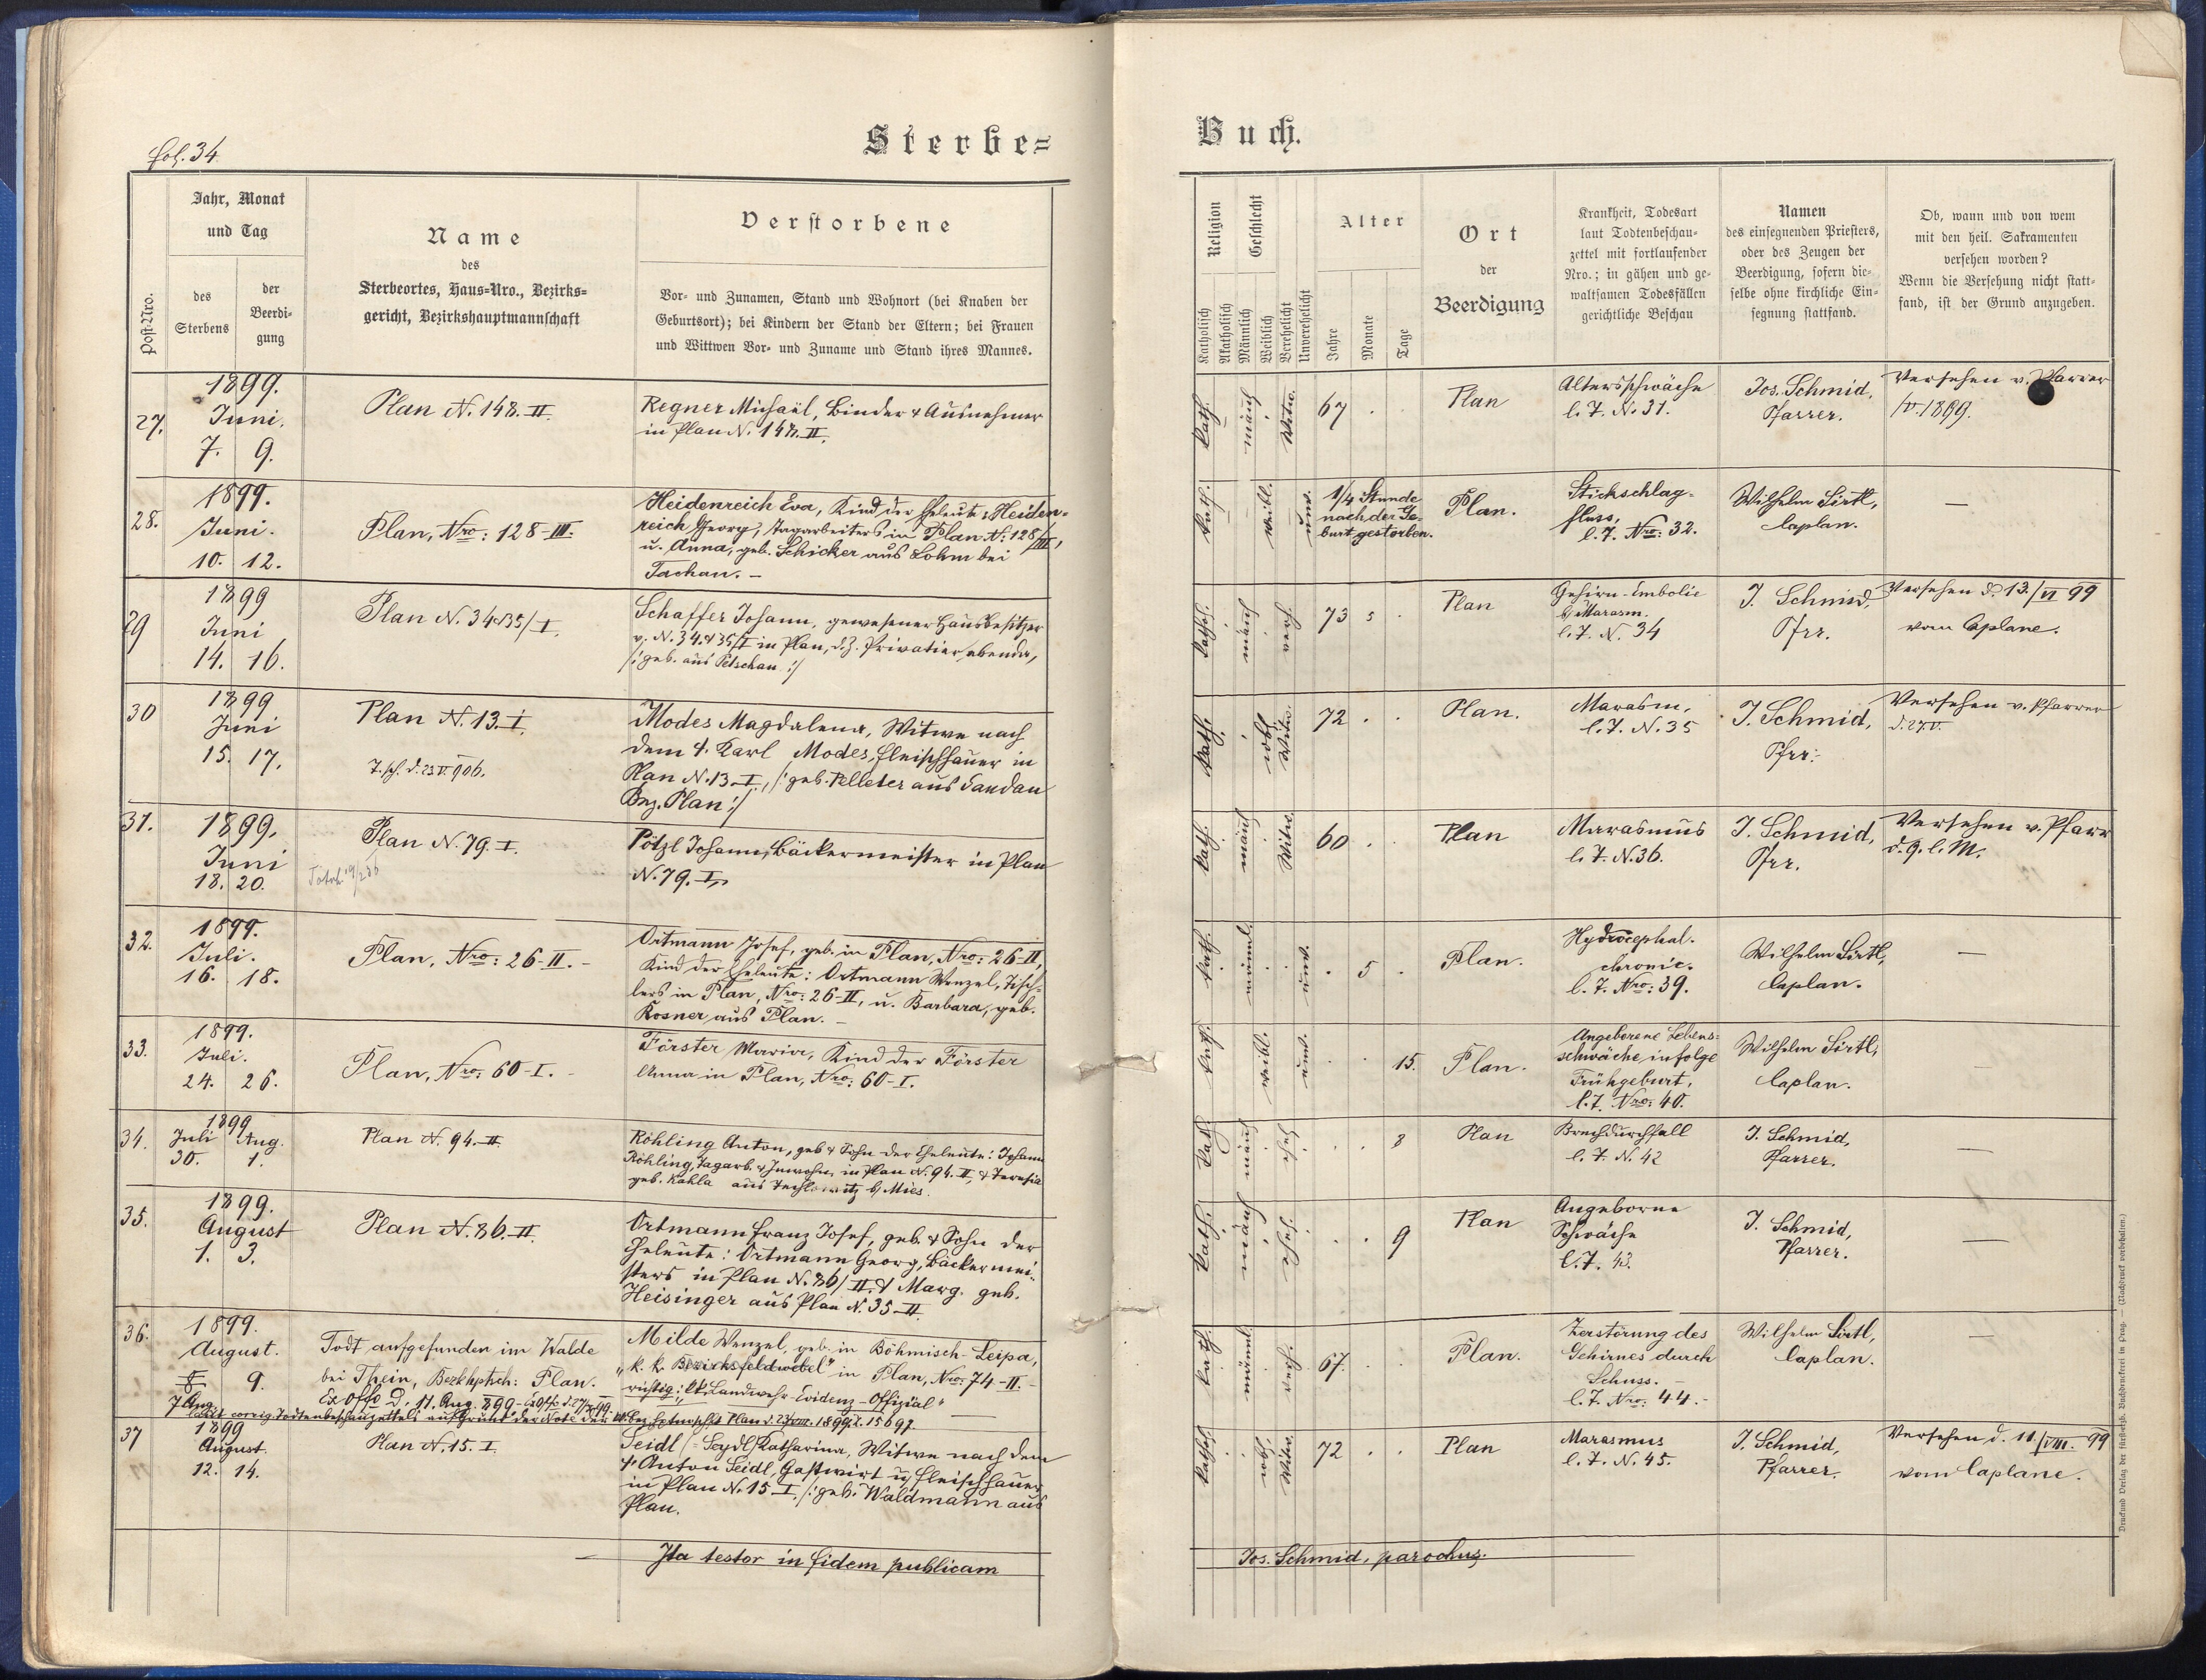 fol. 34.
Sterbe=
Post-Nro.
Jahr, Monat
und Tag
des
Sterbens
der
Beerdi-
gung
Name
des
Sterbeortes, Haus-Nro., Bezirks-
gericht, Bezirkshauptmannschaft
Verstorbene
Vor- und Zunamen, Stand und Wohnort (bei Knaben der
Geburtsort); bei Kindern der Stand der Eltern; bei Frauen
und Wittwen Vor- und Zuname und Stand ihres Mannes.
27.
1899.
Juni.
7. 9.
Plan N. 148. II.
Regner Michaël, Binder & Ausnehmer
in Plan N. 148. II.
28.
1899.
Juni.
10. 12.
Plan, Nro: 128-III.
Heidenreich Eva, Kind der Eheleute: Heiden-
reich Georg, Tagarbeiters in Plan N: 128/III,
u. Anna, geb. Schicker aus Lohm bei
Tachau. –
29
1899
Juni
14. 16.
Plan N. 34&35/I.
Schaffer Johann, gewesener Hausbesitzer
v. N. 34 & 35/I in Plan, d. Z. Privatier ebenda,
/: geb. aus Petschau :/
30
1899
Juni
15. 17.
Plan N. 13. I.
Modes Magdalena, Witwe nach
dem † Karl Modes, Fleischhauer in
Plan N. 13-I, /: geb. Pelleter aus Sandau
Bez. Plan :/
31.
1899.
Juni
18. 20.
Plan N. 79. I.
Pötzl Johann, Bäckermeister in Plan
N. 79. I.
32.
1899.
Juli.
16. 18.
Plan, Nro: 26-II. –
Ortmann Josef, geb. in Plan, Nro: 26-II,
Kind der Eheleute: Ortmann Wenzel, Tisch-
lers in Plan, Nro: 26-II, u. Barbara, geb.
Kosner aus Plan. –
33.
1899.
Juli.
24. 26.
Plan, Nro: 60-I. –
Förster Maria, Kind der Förster
Anna in Plan, Nro: 60-I.
34.
1899
Juli Aug.
30. 1.
Plan N. 94. II
Röhling Anton, geb & Sohn der Eheleute: Johann
Röhling, Tagarb. & Inwohn. in Plan N. 94. II, & Theresia
geb. Kahla aus Techlowitz b/ Mies.
35.
1899.
August
1. 3.
Plan N. 86. II.
Ortmann Franz Josef, geb & Sohn der
Eheleute: Ortmann Georg, Bäckermei-
sters in Plan N. 86/II. & Marg. geb.
Heisinger aus Plan N. 35-II.
36.
1899.
August.
8 9.
7 Aug.
Todt aufgefunden im Walde
bei Thein, Bezkhptsch: Plan.
Ex offo D. 11. Aug. 899
Milde Wenzel, geb. in Böhmisch-Leipa,
"k. k. Bezirksfeldwebel" in Plan, Nro: 74-II. –
richtig: "k.k. Landwehr-Evidenz-Offizial"
laut corrig. Todtenbeschauzettels auf Grund der Note der k.k. Bez. Hptmschft Plan d. 23/VIII. 1899 Z. 15697.
37
1899
August.
12. 14.
Plan N. 15. I.
Seidl (= Seydl) Katharina, Witwe nach dem
† Anton Seidl, Gastwirt u. Fleischhauer
in Plan N. 15-I. /: geb. Waldmann aus
Plan.
Ita testor in fidem publicam
Buch.
Religion
Katholisch
Akatholisch
Geschlecht
Männlich
Weiblich
Verehelicht
Unverehelicht
Alter
Jahre
Monate
Tage
Ort
der
Beerdigung
Krankheit, Todesart
laut Todtenbeschau-
zettel mit fortlaufender
Nro.; in gähen und ge-
waltsamen Todesfällen
gerichtliche Beschau
Namen
des einsegnenden Priesters,
oder des Zeugen der
Beerdigung, sofern die-
selbe ohne kirchliche Ein-
segnung stattfand.
Ob, wann und von wem
mit den heil. Sakramenten
versehen worden?
Wenn die Versehung nicht statt-
fand, ist der Grund anzugeben.
kath. männ Witw. 67 . . Plan
Altersschwäche
l. T. N. 31.
Jos. Schmid,
Pfarrer.
Versehen v. Pfarrer
/V. 1899.
kath. weibl. unv.
1/4 Stunde
nach der Ge-
burt gestorben.
Plan.
Stickschlag-
fluss,
l. T. Nro: 32.
Wilhelm Sirtl,
Caplan.
—
kathol. männ verh. 73 5 . Plan
Gehirn-Embolie
b/ Marasm.
l. T. N. 34
J. Schmid,
Pfrr.
Versehen d. 13./VI 99
vom Caplane.
kath. wbl. Witw. 72 . . Plan.
Marasm.
l. T. N. 35
J. Schmid,
Pfrr.
Versehen v. Pfarrer
d. 27/V.
kath. männ Witw. 60 . . Plan
Marasmus
l. T. N. 36.
J. Schmid,
Pfrr.
Versehen v. Pfarr
d. 9. l. M.
kath. männl. unv. . 5 . Plan.
Hydrocephal.
chronic.
l. T. Nro: 39.
Wilhelm Sirtl,
Caplan.
—
kath. weibl. unv. . . 15. Plan.
Angeborene Lebens-
schwäche infolge
Frühgeburt.
l. T. Nro: 40.
Wilhelm Sirtl,
Caplan.
—
kath. männ ehel. . . 8 Plan
Brechdurchfall
l. T. N. 42
J. Schmid,
Pfarrer.
—
kath. männ ehel. . . 9 Plan
Angeborne
Schwäche
l. T. 43.
J. Schmid,
Pfarrer.
—
kath. männl. verh. 67. . . Plan.
Zerstörung des
Gehirnes durch
Schuss. –
l. T. Nro: 44. –
Wilhelm Sirtl,
Caplan.
—
kathol. wbl. Witw. 72 . . Plan
Marasmus
l. T. N. 45.
J. Schmid,
Pfarrer.
Versehen d. 11./VIII. 99
vom Caplane.
Jos. Schmid, parochus.
Druck und Verlag der fürst-erzb. Buchdruckerei in Prag. — (Nachdruck vorbehalten.)